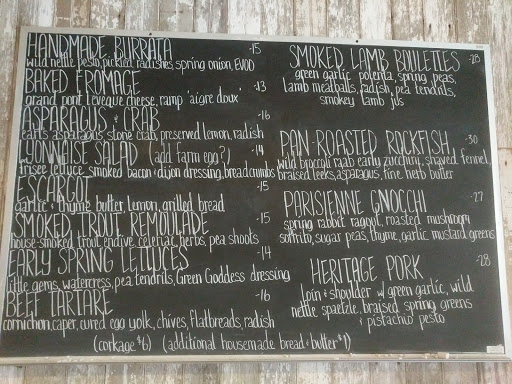 HANDMADE BURRATA -15
wild nettle pesto, pickled radishes, spring onion, EVOO
BAKED FROMAGE -13
grand pont l'eveque cheese, ramp 'aigre doux'
ASPARAGUS + CRAB -16
earl's asparagus, stone crab, preserved lemon, radish
LYONNAISE SALAD (add farm egg?) -14
frisee lettuce, smoked bacon + dijon dressing, breadcrumbs
ESCARGOT -15
garlic + thyme butter, lemon, grilled bread
SMOKED TROUT REMOULADE -15
house-smoked trout, endive, celeriac, herbs, pea shoots
EARLY SPRING LETTUCES -14
little gems, watercress, pea tendrils, Green Goddess dressing
BEEF TARTARE -16
cornichon, caper, cured egg yolk, chives, flatbreads, radish
(corkage $6) (additional housemade bread + butter $1)
SMOKED LAMB BOULETTES -28
green garlic polenta, spring peas,
lamb meatballs, radish, pea tendrils,
smokey lamb jus
PAN-ROASTED ROCKFISH -30
wild broccoli raab, early zucchini, shaved fennel,
braised leeks, asparagus, fine herb butter
PARISIENNE GNOCCHI -27
spring rabbit ragout, roasted mushroom
soffrito, sugar peas, thyme, garlic mustard greens
HERITAGE PORK -28
loin + shoulder w/ green garlic, wild
nettle spaetzle, braised spring greens
+ pistachio pesto